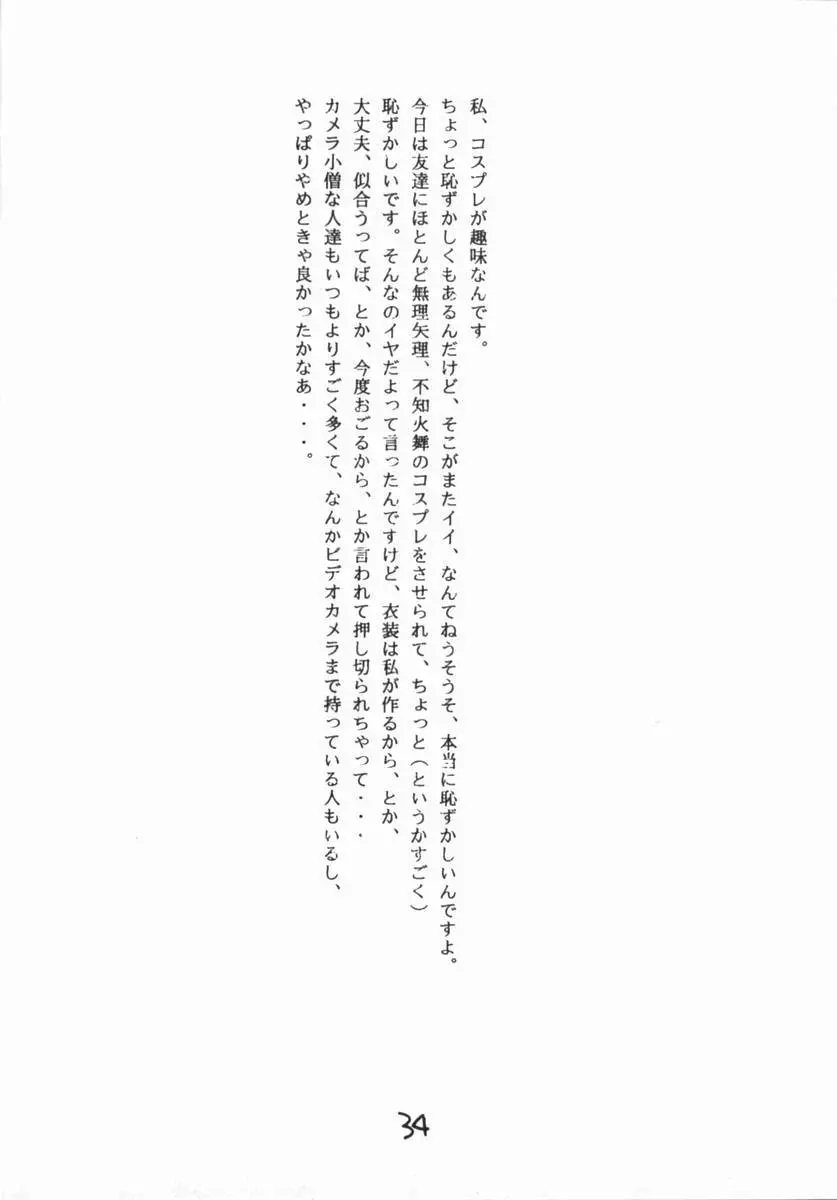 私、コスプレが趣味なんです。
ちょっと恥ずかしくもあるんだけど、そこがまたイイ、なんてねうそうそ、本当に恥ずかしいんですよ。
今日は友達にほとんど無理矢理、不知火舞のコスプレをさせられて、ちょっと(というかすごく)
恥ずかしいです。そんなのイヤだよって言ったんですけど、衣装は私が作るから、とか、
大丈夫、似合うってば、とか、今度おごるから、とか言われて押し切られちゃって・・・
カメラ小僧な人達もいつもよりすごく多くて、なんかビデオカメラまで持っている人もいるし、
やっぱりやめときゃ良かったかなあ・・・。
34